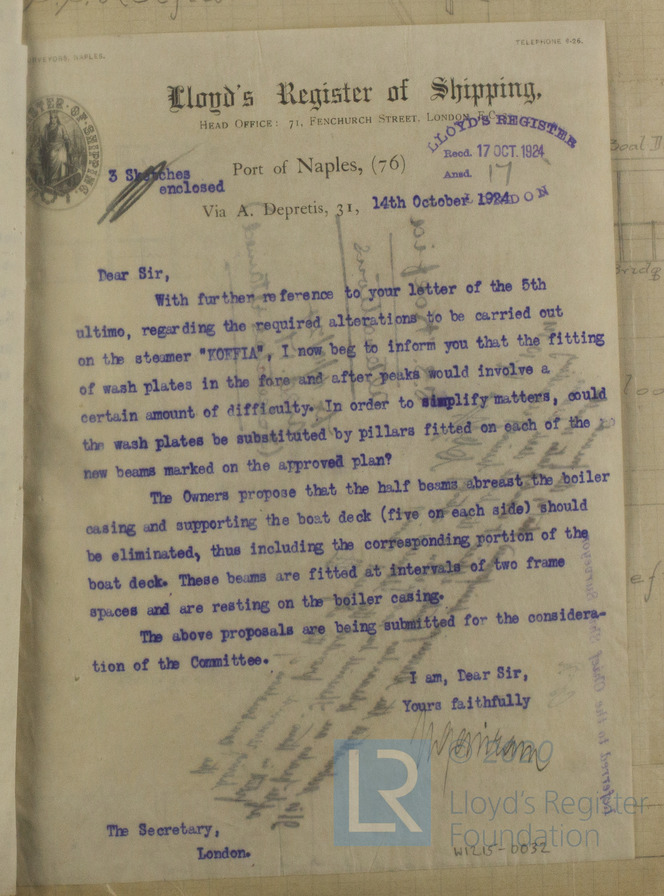 TELEPHONE 5-26.
SURVEYORS, NAPLES.
Lloyd's Register of Shipping,
HEAD OFFICE: 71, FENCHURCH STREET, LONDON, E.C.
LLOYD'S REGISTER
Recd. 17 OCT. 1924
Ansd. 17
LONDON
3 Sketches
enclosed
Port of Naples, (76)
Via A. Depretis, 31, 14th October 1924
Dear Sir,
With further reference to your letter of the 5th
ultimo, regarding the required alterations to be carried out
on the steamer "KOFFIA", I now beg to inform you that the fitting
of wash plates in the fore and after peaks would involve a
certain amount of difficulty. In order to simplify matters, could
the wash plates be substituted by pillars fitted on each of the
new beams marked on the approved plan?
The Owners propose that the half beams abreast the boiler
casing and supporting the boat deck (five on each side) should
be eliminated, thus including the corresponding portion of the
boat deck. These beams are fitted at intervals of two frame
spaces and are resting on the boiler casing.
The above proposals are being submitted for the considera-
tion of the Committee.
I am, Dear Sir,
Yours faithfully
The Secretary,
London.
LR
© 2020
Lloyd's Register
Foundation
W1215-0032